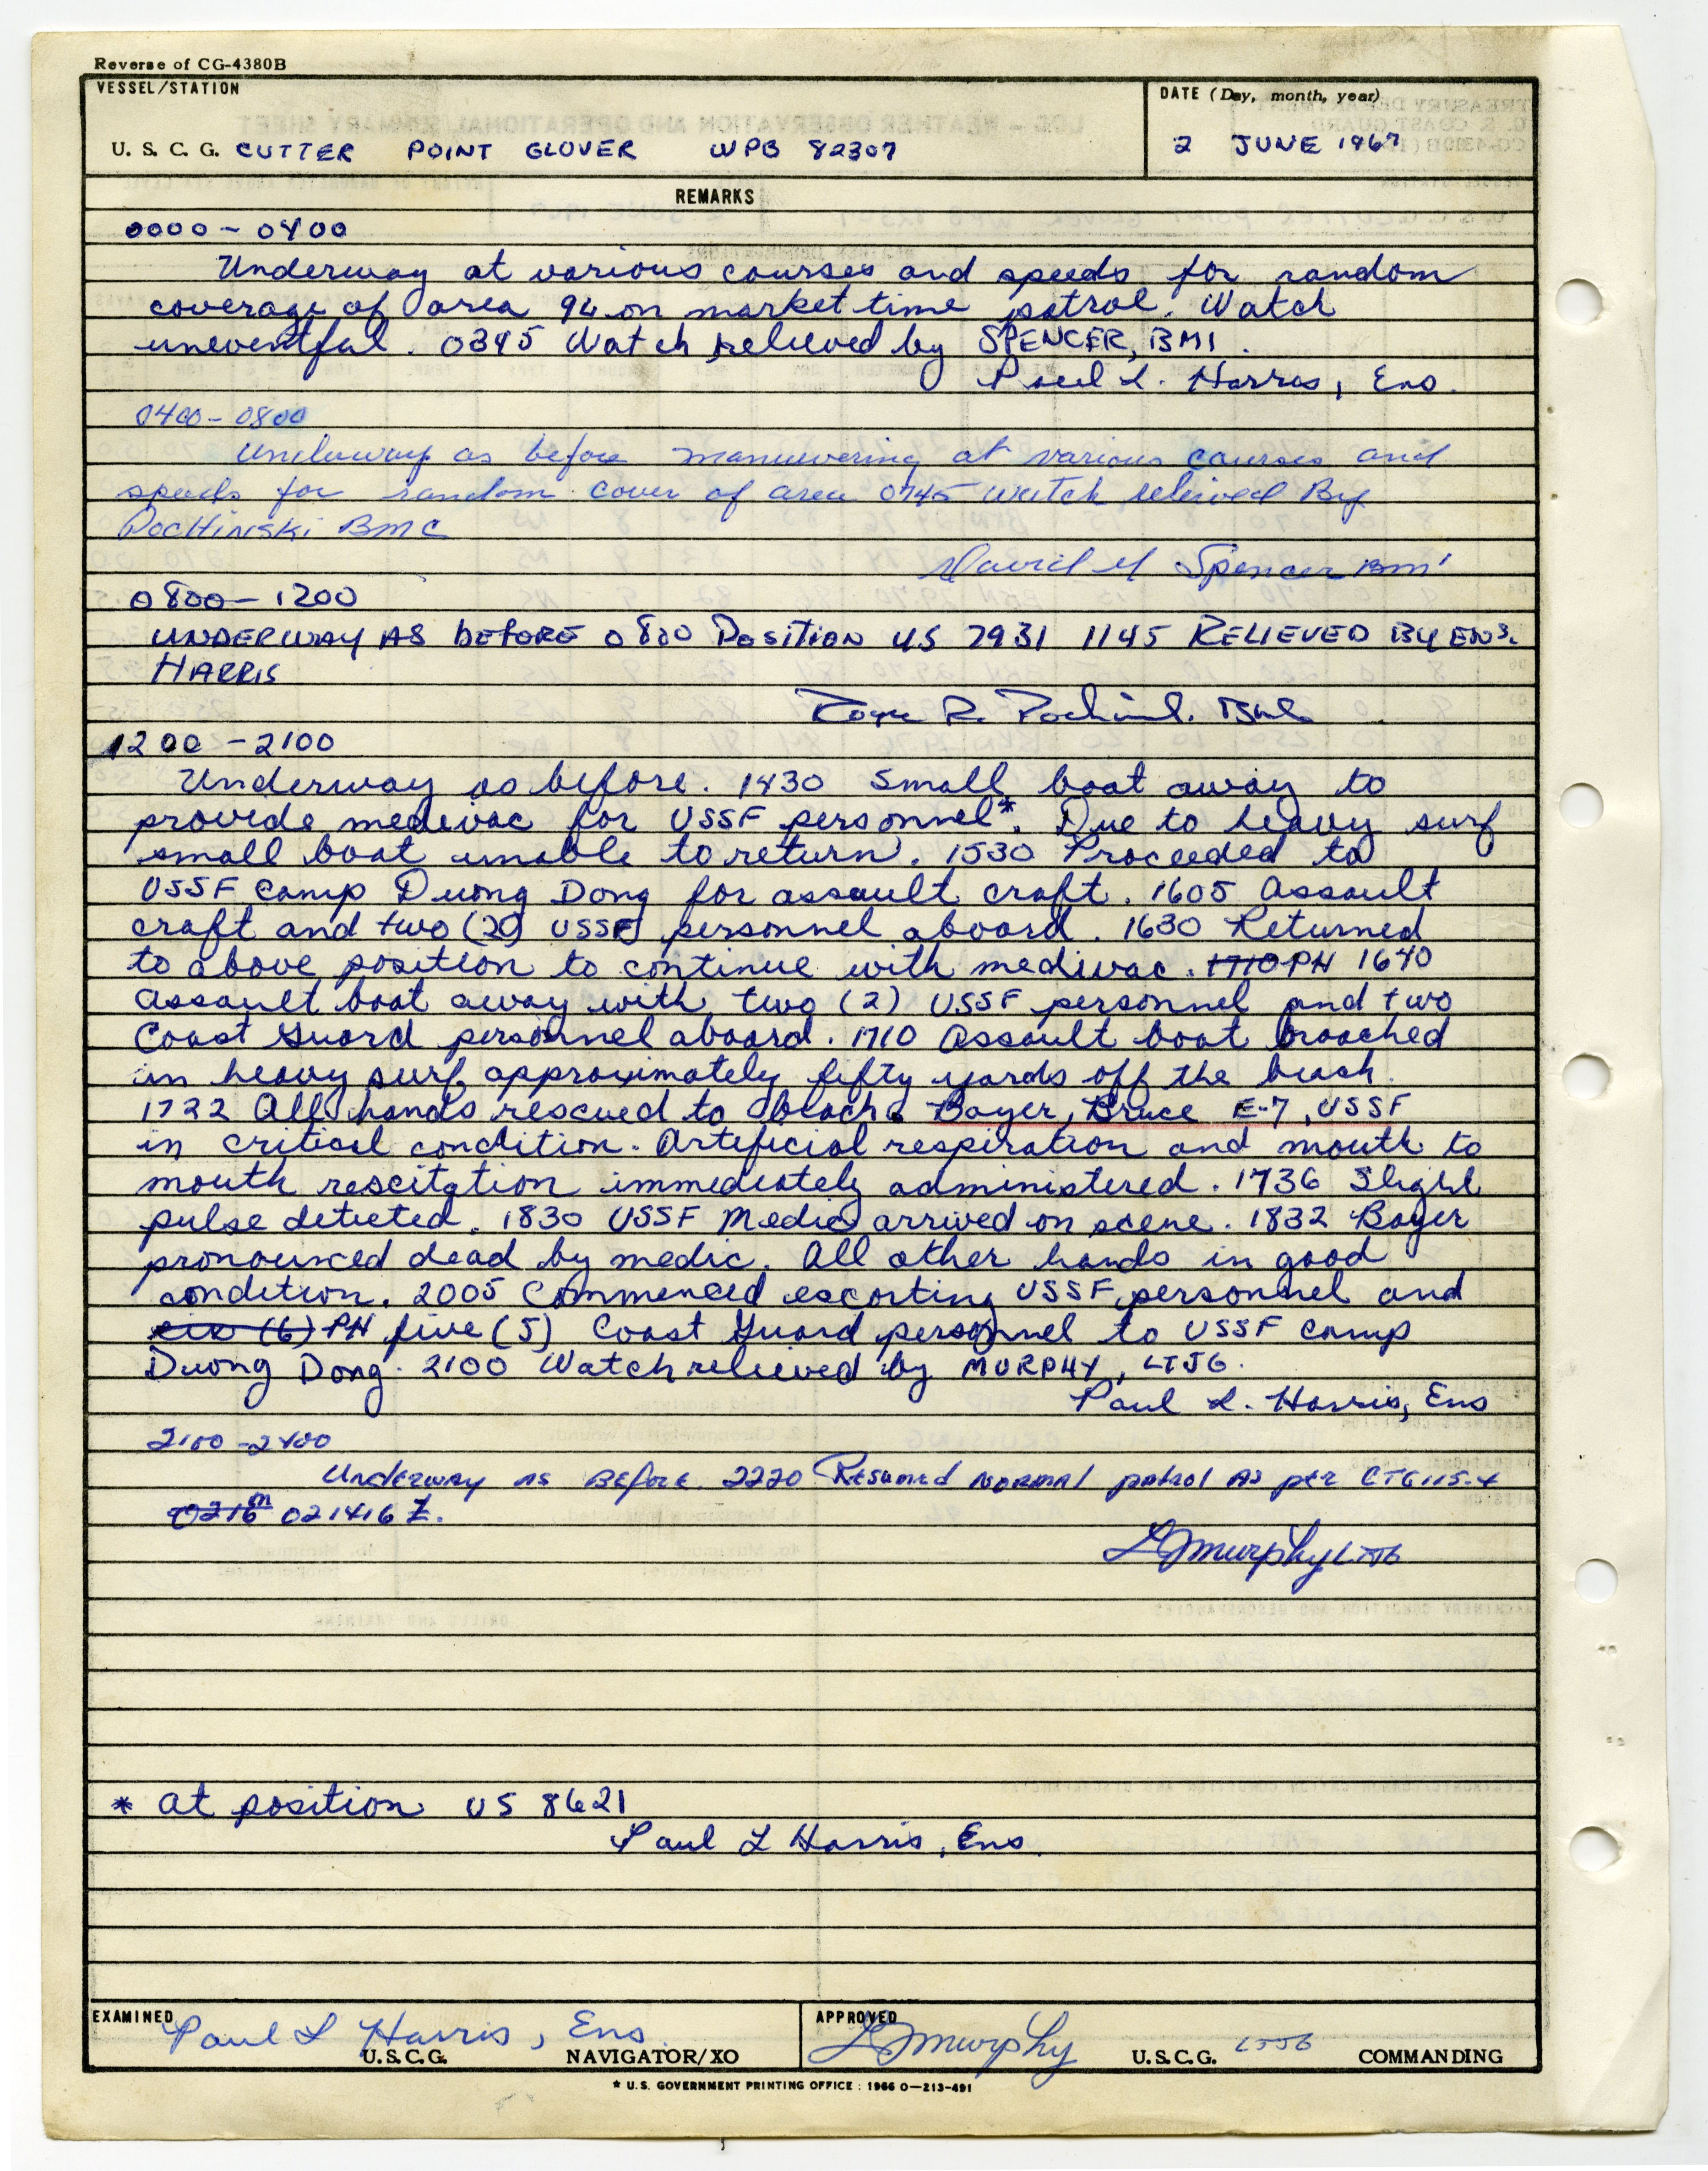 Reverse of CG-4380B
VESSEL/STATION
DATE (Day, month, year)
U. S. C. G. CUTTER POINT GLOVER WPB 82307
2 JUNE 1967
REMARKS
0000 - 0400
Underway at various courses and speeds for random
coverage of area 94 on market time patrol. Watch
uneventful. 0345 Watch relieved by SPENCER, BM1.
Paul L. Harris, Ens.
0400-0800
Underway as before manuvering at various courses and
speeds for random cover of area 0745 watch relieved By
PocHinski BMC
David M Spencer BM1
0800-1200
UNDERWAY AS bEfORE 0800 Position US 7931 1145 RELIEVED By ENS.
HARRIS
Roger R. BMC
1200 - 2100
Underway as before. 1430 Small boat away to
provide medivac for USSF personnel*. Due to heavy surf
small boat unable to return. 1530 Proceeded to
USSF Camp Duong Dong for assault craft. 1605 Assault
craft and two (2) USSF personnel aboard. 1630 Returned
to above position to continue with medivac. 1710 PH 1640
Assault boat away with two (2) USSF personnel and two
Coast Guard personnel aboard. 1710 Assault boat broached
in heavy surf approximately fifty yards off the beach.
1722 All hands rescued to beach. Boyer, Bruce E-7, USSF
in critical condition. Artificial respiration and mouth to
mouth rescitation immediately administered. 1736 Slight
pulse detected. 1830 USSF Medic arrived on scene. 1832 Boyer
pronounced dead by medic. All other hands in good
condition. 2005 Commenced escorting USSF personnel and
six (6) PH five (5) Coast Guard personnel to USSF camp
Duong Dong. 2100 Watch relieved by MURPHY, LTJG.
Paul L. Harris, Ens
2100-2400
Underway as Before. 2220 Resumed NORMAL patrol As per CTG 115.4
0216 m 021416 Z.
LJ Murphy LTJG
* at position US 8621
Paul L Harris, Ens.
EXAMINED
Paul L Harris, Ens.
U.S.C.G. NAVIGATOR/XO
APPROVED
LJ Murphy
U.S.C.G. LTJG COMMANDING
* U.S. GOVERNMENT PRINTING OFFICE : 1966 O-213-491